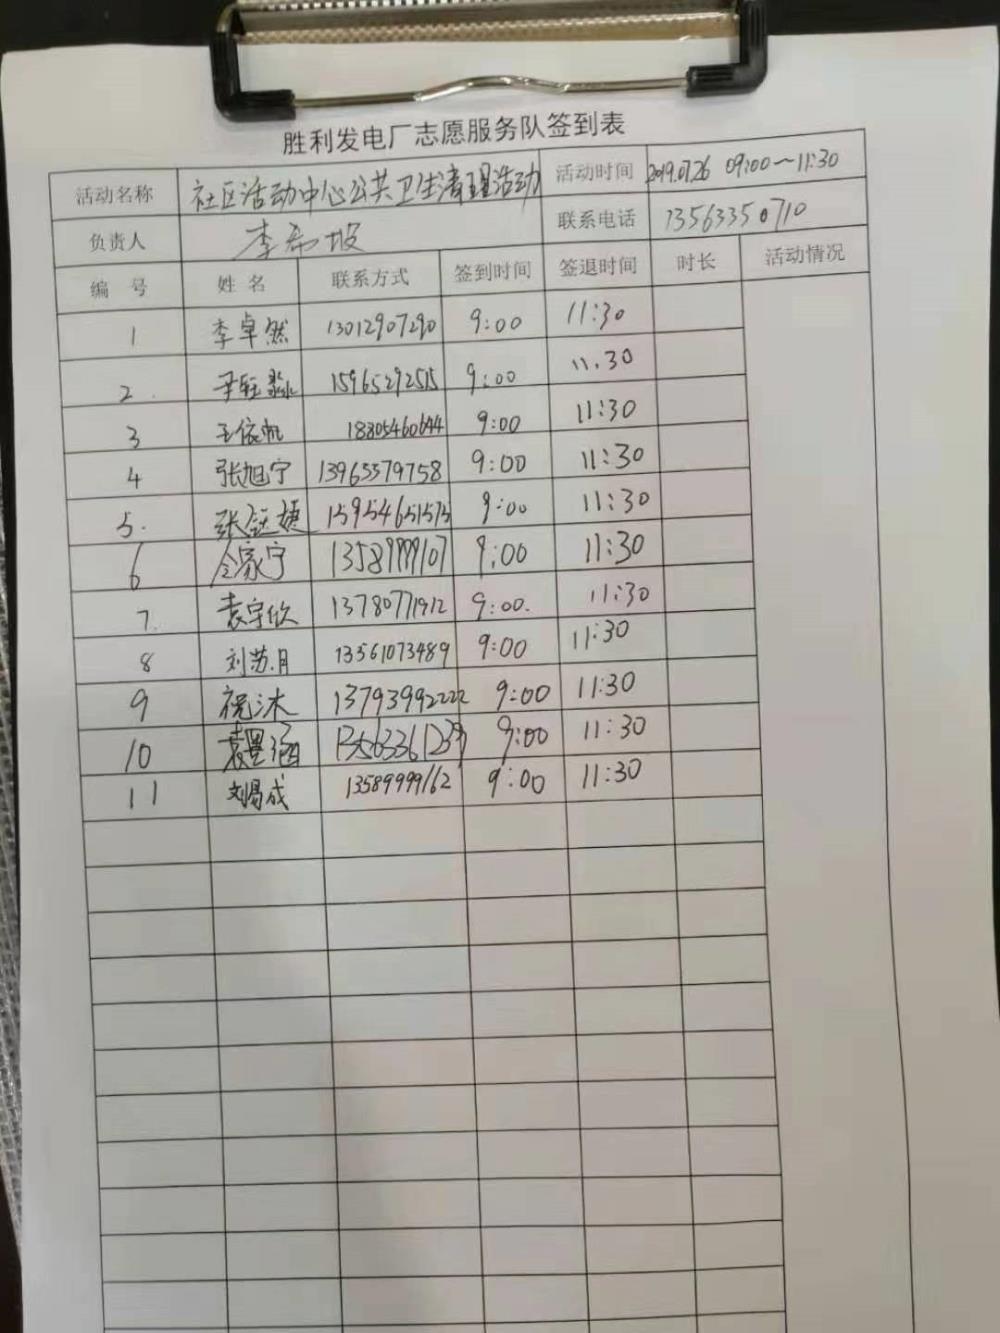 胜利发电厂志愿服务队签到表
活动名称 社区活动中心公共卫生清理活动 活动时间 2019.07.26 09:00～11:30
负责人 李希坡 联系电话 13563350710
编 号 姓 名 联系方式 签到时间 签退时间 时长 活动情况
1 李卓然 13012907290 9:00 11:30
2. 15965292515 9:00 11.30
3 王依帆 18805460644 9:00 11:30
4 张旭宁 13965579758 9:00 11:30
5. 张钰婕 15954651575 9:00 11:30
6 仝家宁 13589999107 9:00 11:30
7. 袁宇欣 13780771912 9:00. 11:30
8 刘苏月 13561073489 9:00 11:30
9 祝沐 13793992222 9:00 11:30
10 9:00 11:30
11 刘易成 13589999162 9:00 11:30